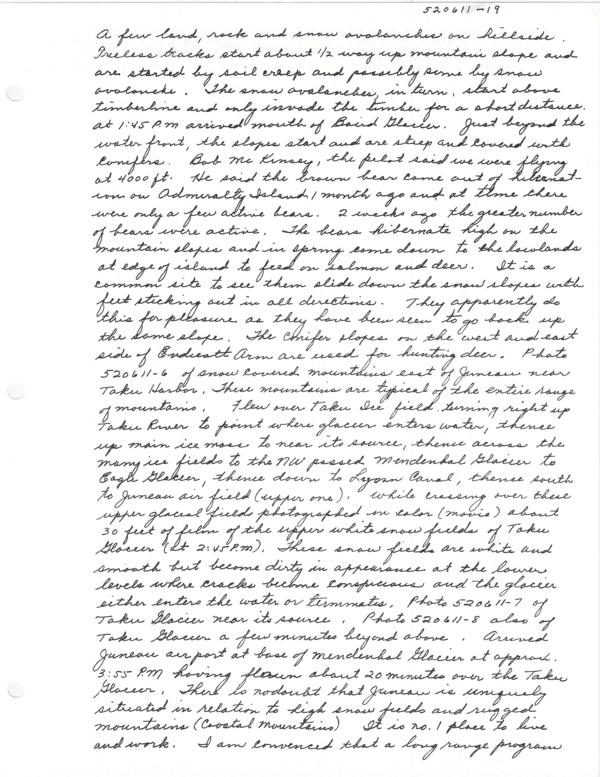 520611-19
A few land, rock and snow avalanches on hillside.
Treeless tracks start about 1/2 way up mountain slope and
are started by soil creep and possibly some by snow
avalanche. The snow avalanches, in turn, start above
timberline and only invade the timber for a short distance.
at 1:45 P.M arrived mouth of Baird Glacier. Just beyond the
water front, the slopes start and are steep and covered with
conifers. Bob McKinsey, the pilot said we were flying
at 4000 ft. He said the brown bear came out of hibernat-
ion on Admiralty Island 1 month ago and at time there
were only a few active bears. 2 weeks ago the greater number
of bears were active. The bears hibernate high on the
mountain slopes and in spring come down to the lowlands
at edge of island to feed on salmon and deer. It is a
common site to see them slide down the snow slopes with
feet sticking out in all directions. They apparently do
this for pleasure as they have been seen to go back up
the same slope. The conifer slopes on the west and east
side of Endicott Arm are used for hunting deer. Photo
520611-6 of snow covered mountains east of Juneau near
Taku Harbor. These mountains are typical of the entire range
of mountains. Flew over Taku Ice field turning right up
Taku River to point where glacier enters water, thence
up main ice mass to near its source, thence across the
many ice fields to the NW passed Mendenhal Glacier to
Eagle Glacier, thence down to Lynn Canal, thence south
to Juneau air field (upper one). While crossing over these
upper glacial fields photographed in color (movie) about
30 feet of film of the upper white snow fields of Taku
Glacier (at 2:45 P.M). These snow fields are white and
smooth but become dirty in appearance at the lower
levels where cracks become conspicuous and the glacier
either enters the water or terminates. Photo 520611-7 of
Taku Glacier near its source. Photo 520611-8 also of
Taku Glacier a few minutes beyond above. Arrived
Juneau airport at base of Mendenhal Glacier at approx.
3:55 P.M having flown about 20 minutes over the Taku
Glacier. There is no doubt that Juneau is uniquely
situated in relation to high snow fields and rugged
mountains (Coastal Mountains) It is no. 1 place to live
and work. I am convinced that a long range program